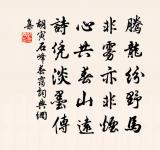 騰龍紛野馬
非雰亦非煙
心共春山遠
詩凭淡墨傳
胡寅石峰春靄詞典網
集